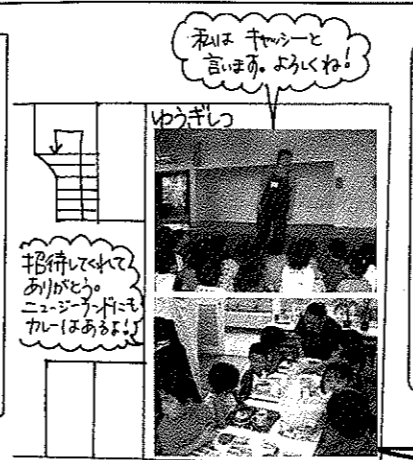 私は キャッシーと
言います。よろしくね!
ゆうぎしつ
招待してくれて
ありがとう。
ニュージーランドにも
カレーはあるよ!